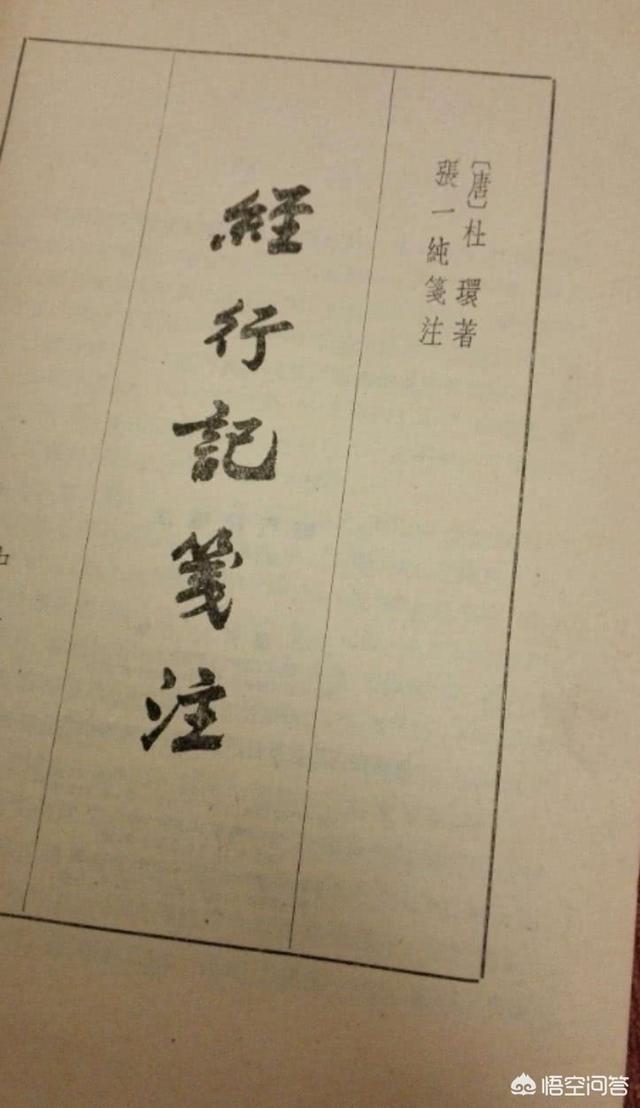 〔唐〕杜環著
張一純箋注
經行記箋注
中
悟空问答